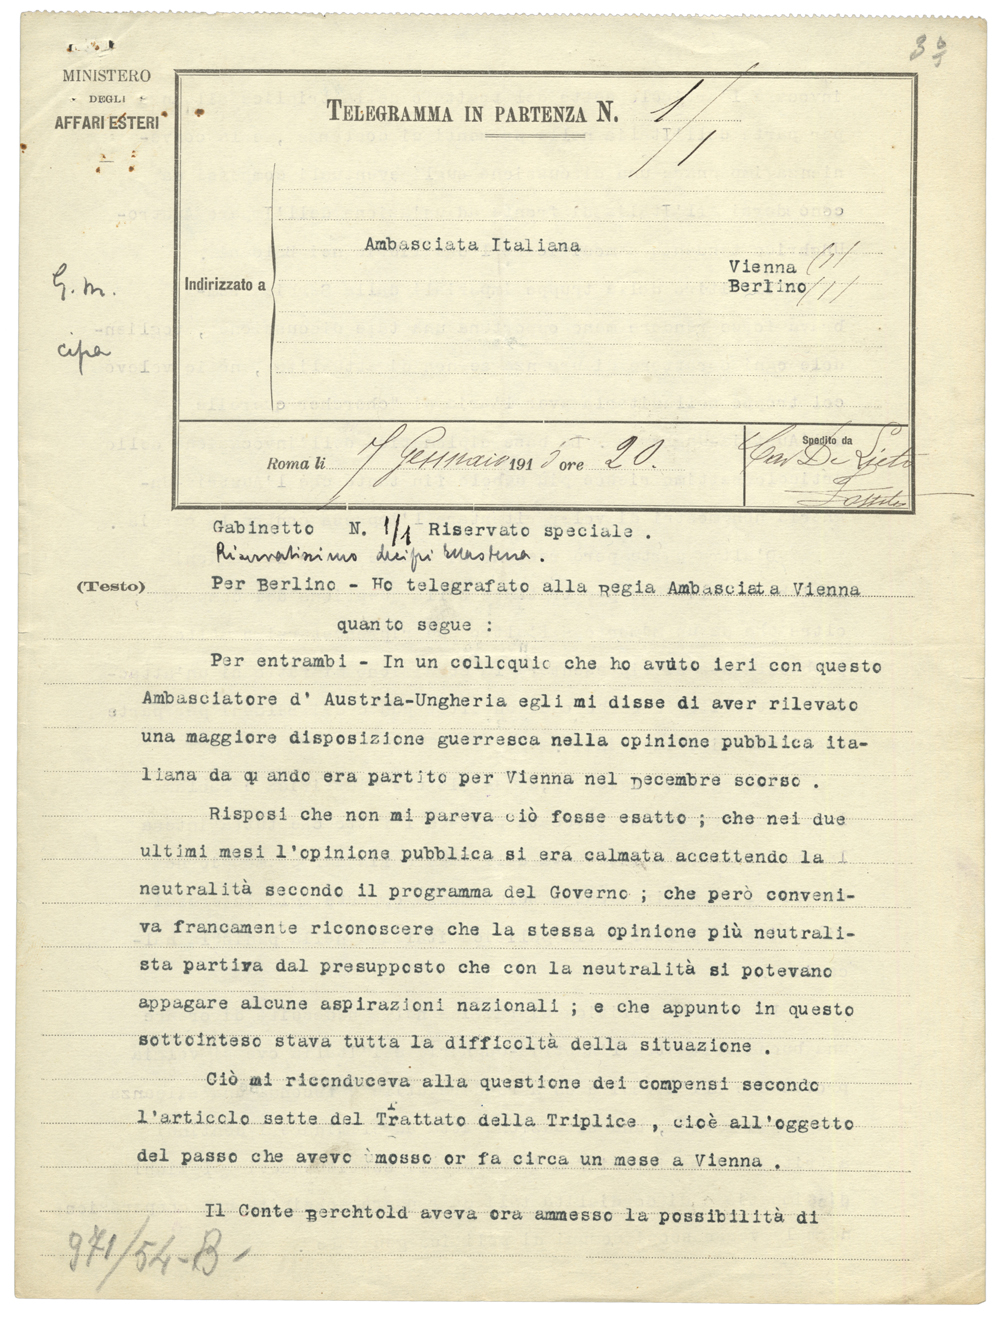 MINISTERO
DEGLI
AFFARI ESTERI
TELEGRAMMA IN PARTENZA N. 1/1
Ambasciata Italiana
Vienna 1/1
Berlino 1/1
Indirizzato a
G. M.
cifra
Roma li 7 Gennaio 1915 ore 20.
Spedito da
Cav De Lieto
Gabinetto N. 1/1 Riservato speciale .
Riservatissimo decifri Ella stessa .
(Testo) Per Berlino - Ho telegrafato alla Regia Ambasciata Vienna
quanto segue :
Per entrambi - In un colloquio che ho avuto ieri con questo
Ambasciatore d' Austria-Ungheria egli mi disse di aver rilevato
una maggiore disposizione guerresca nella opinione pubblica ita-
liana da quando era partito per Vienna nel Decembre scorso .
Risposi che non mi pareva ciò fosse esatto ; che nei due
ultimi mesi l'opinione pubblica si era calmata accettendo la
neutralità secondo il programma del Governo ; che però conveni-
va francamente riconoscere che la stessa opinione più neutrali-
sta partiva dal presupposto che con la neutralità si potevano
appagare alcune aspirazioni nazionali ; e che appunto in questo
sottointeso stava tutta la difficoltà della situazione .
Ciò mi riconduceva alla questione dei compensi secondo
l'articolo sette del Trattato della Triplice , cioè all'oggetto
del passo che avevo mosso or fa circa un mese a Vienna .
Il Conte Berchtold aveva ora ammesso la possibilità di
971/54-B-